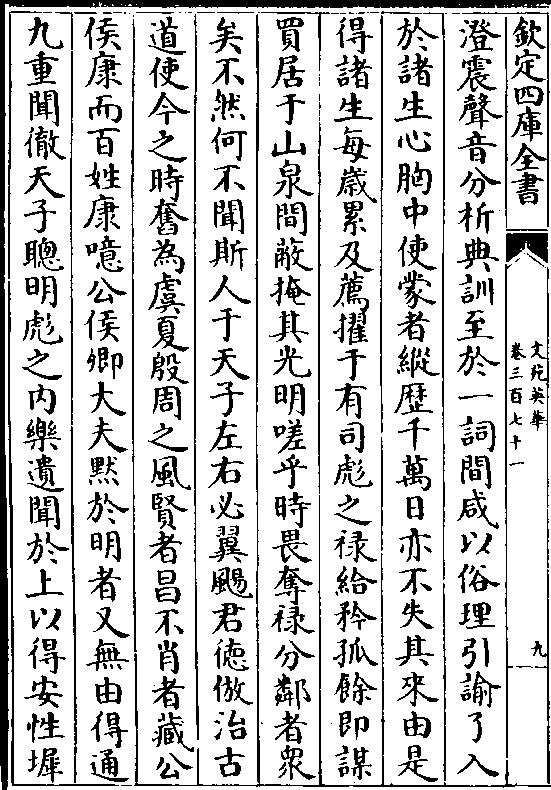 欽定四庫全書
文苑英華
卷三百七十一
九
澄震聲音分析典訓至於一詞間咸以俗理引諭了入
於諸生心胸中使蒙者縱歴千萬日亦不失其來由是
得諸生每歳累及薦擢于有司彪之禄給矜孤餘即謀
買居于山泉間蔽掩其光明嗟乎時畏奪禄分鄰者衆
矣不然何不聞斯人于天子左右必翼颺君徳倣治古
道使今之時奮為虞夏殷周之風賢者昌不肖者藏公
侯康而百姓康噫公侯卿大夫黙於明者又無由得通
九重聞徹天子聰明彪之内樂遺聞於上以得安性墀